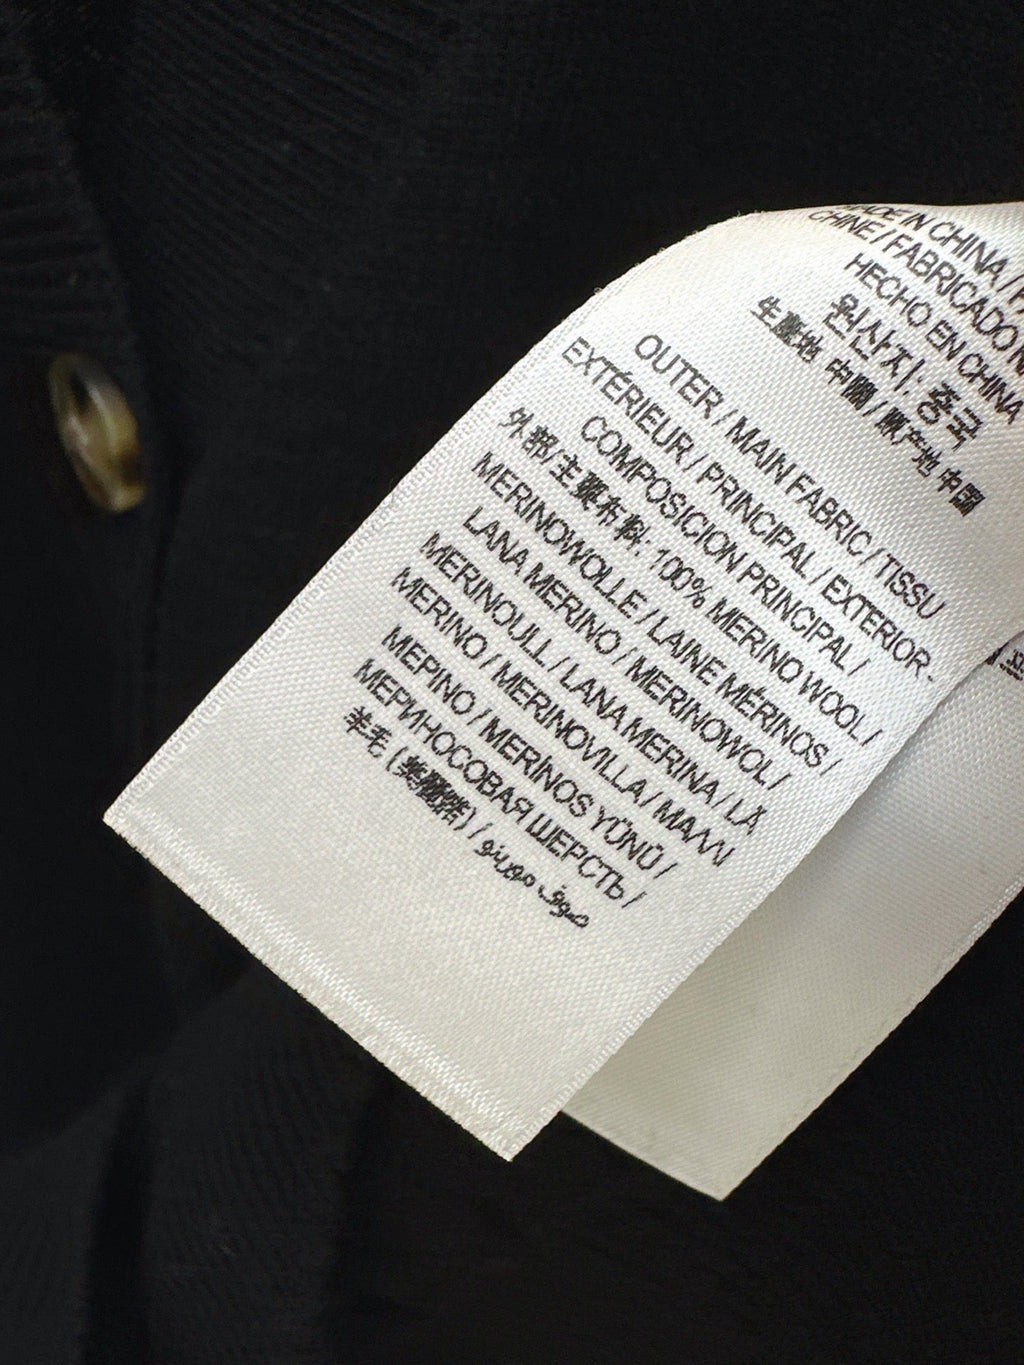 MADE IN CHINA /
CHINE / FABRICADO
HECHO EN CHINA
원산지: 중국
生產地 中國 / 原产地 中國
OUTER / MAIN FABRIC / TISSU
EXTÉRIEUR / PRINCIPAL / EXTERIOR-
COMPOSICION PRINCIPAL /
外部/主要布料: 100% MERINO WOOL /
MERINOWOLLE / LAINE MÉRINOS /
LANA MERINO / MERINOWOL /
MERINOULL / LANA MERINA / LÃ
MERINO / MERINOVILLA / ΜΑΛΛΙ
ΜΕΡΙΝΟ / MERİNOS YÜNÜ /
МЕРИНОСОВАЯ ШЕРСТЬ /
羊毛 (美麗諾) / صوف مورينو